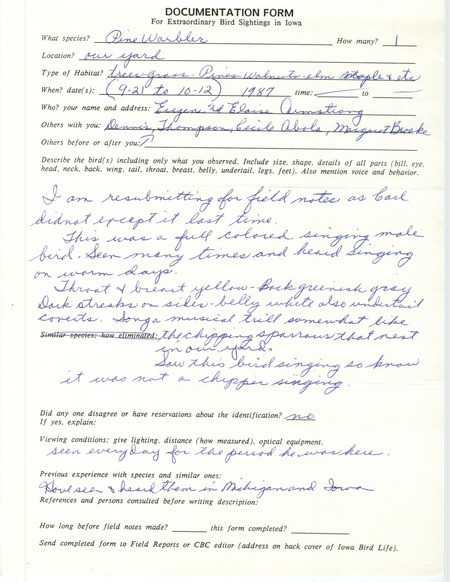 DOCUMENTATION FORM
For Extraordinary Bird Sightings in Iowa
What species? Pine Warbler How many? 1
Location? our yard
Type of Habitat? trees-grass-Pines-Walnuts-elm maple & etc
When? date(s): (9-21 to 10-12) 1987 time: to
Who? your name and address: Eugene and Eloise Armstrong
Others with you: Dennis Thompson, Cecile Abola, Margaret Brooke
Others before or after you:
Describe the bird(s) including only what you observed. Include size, shape, details of all parts (bill, eye,
head, neck, back, wing, tail, throat, breast, belly, undertail, legs, feet). Also mention voice and behavior.
I am resubmitting for field notes as Carl
did not except it last time.
This was a full colored singing male
bird. Seen many times and heard singing
on warm days.
Throat & breast yellow-Back greenish gray
Dark streaks on sides-belly white also undertail
coverts. Song a musical trill somewhat like
Similar species; how eliminated: the chipping sparrows that nest
in our yard.
Saw this bird singing so know
it was not a chipper singing.
Did any one disagree or have reservations about the identification? no
If yes, explain:
Viewing conditions: give lighting, distance (how measured), optical equipment.
seen everyday for the period he was here.
Previous experience with species and similar ones:
Have seen & heard them in Michigan and Iowa
References and persons consulted before writing description:
How long before field notes made? this form completed?
Send completed form to Field Reports or CBC editor (address on back cover of Iowa Bird Life).